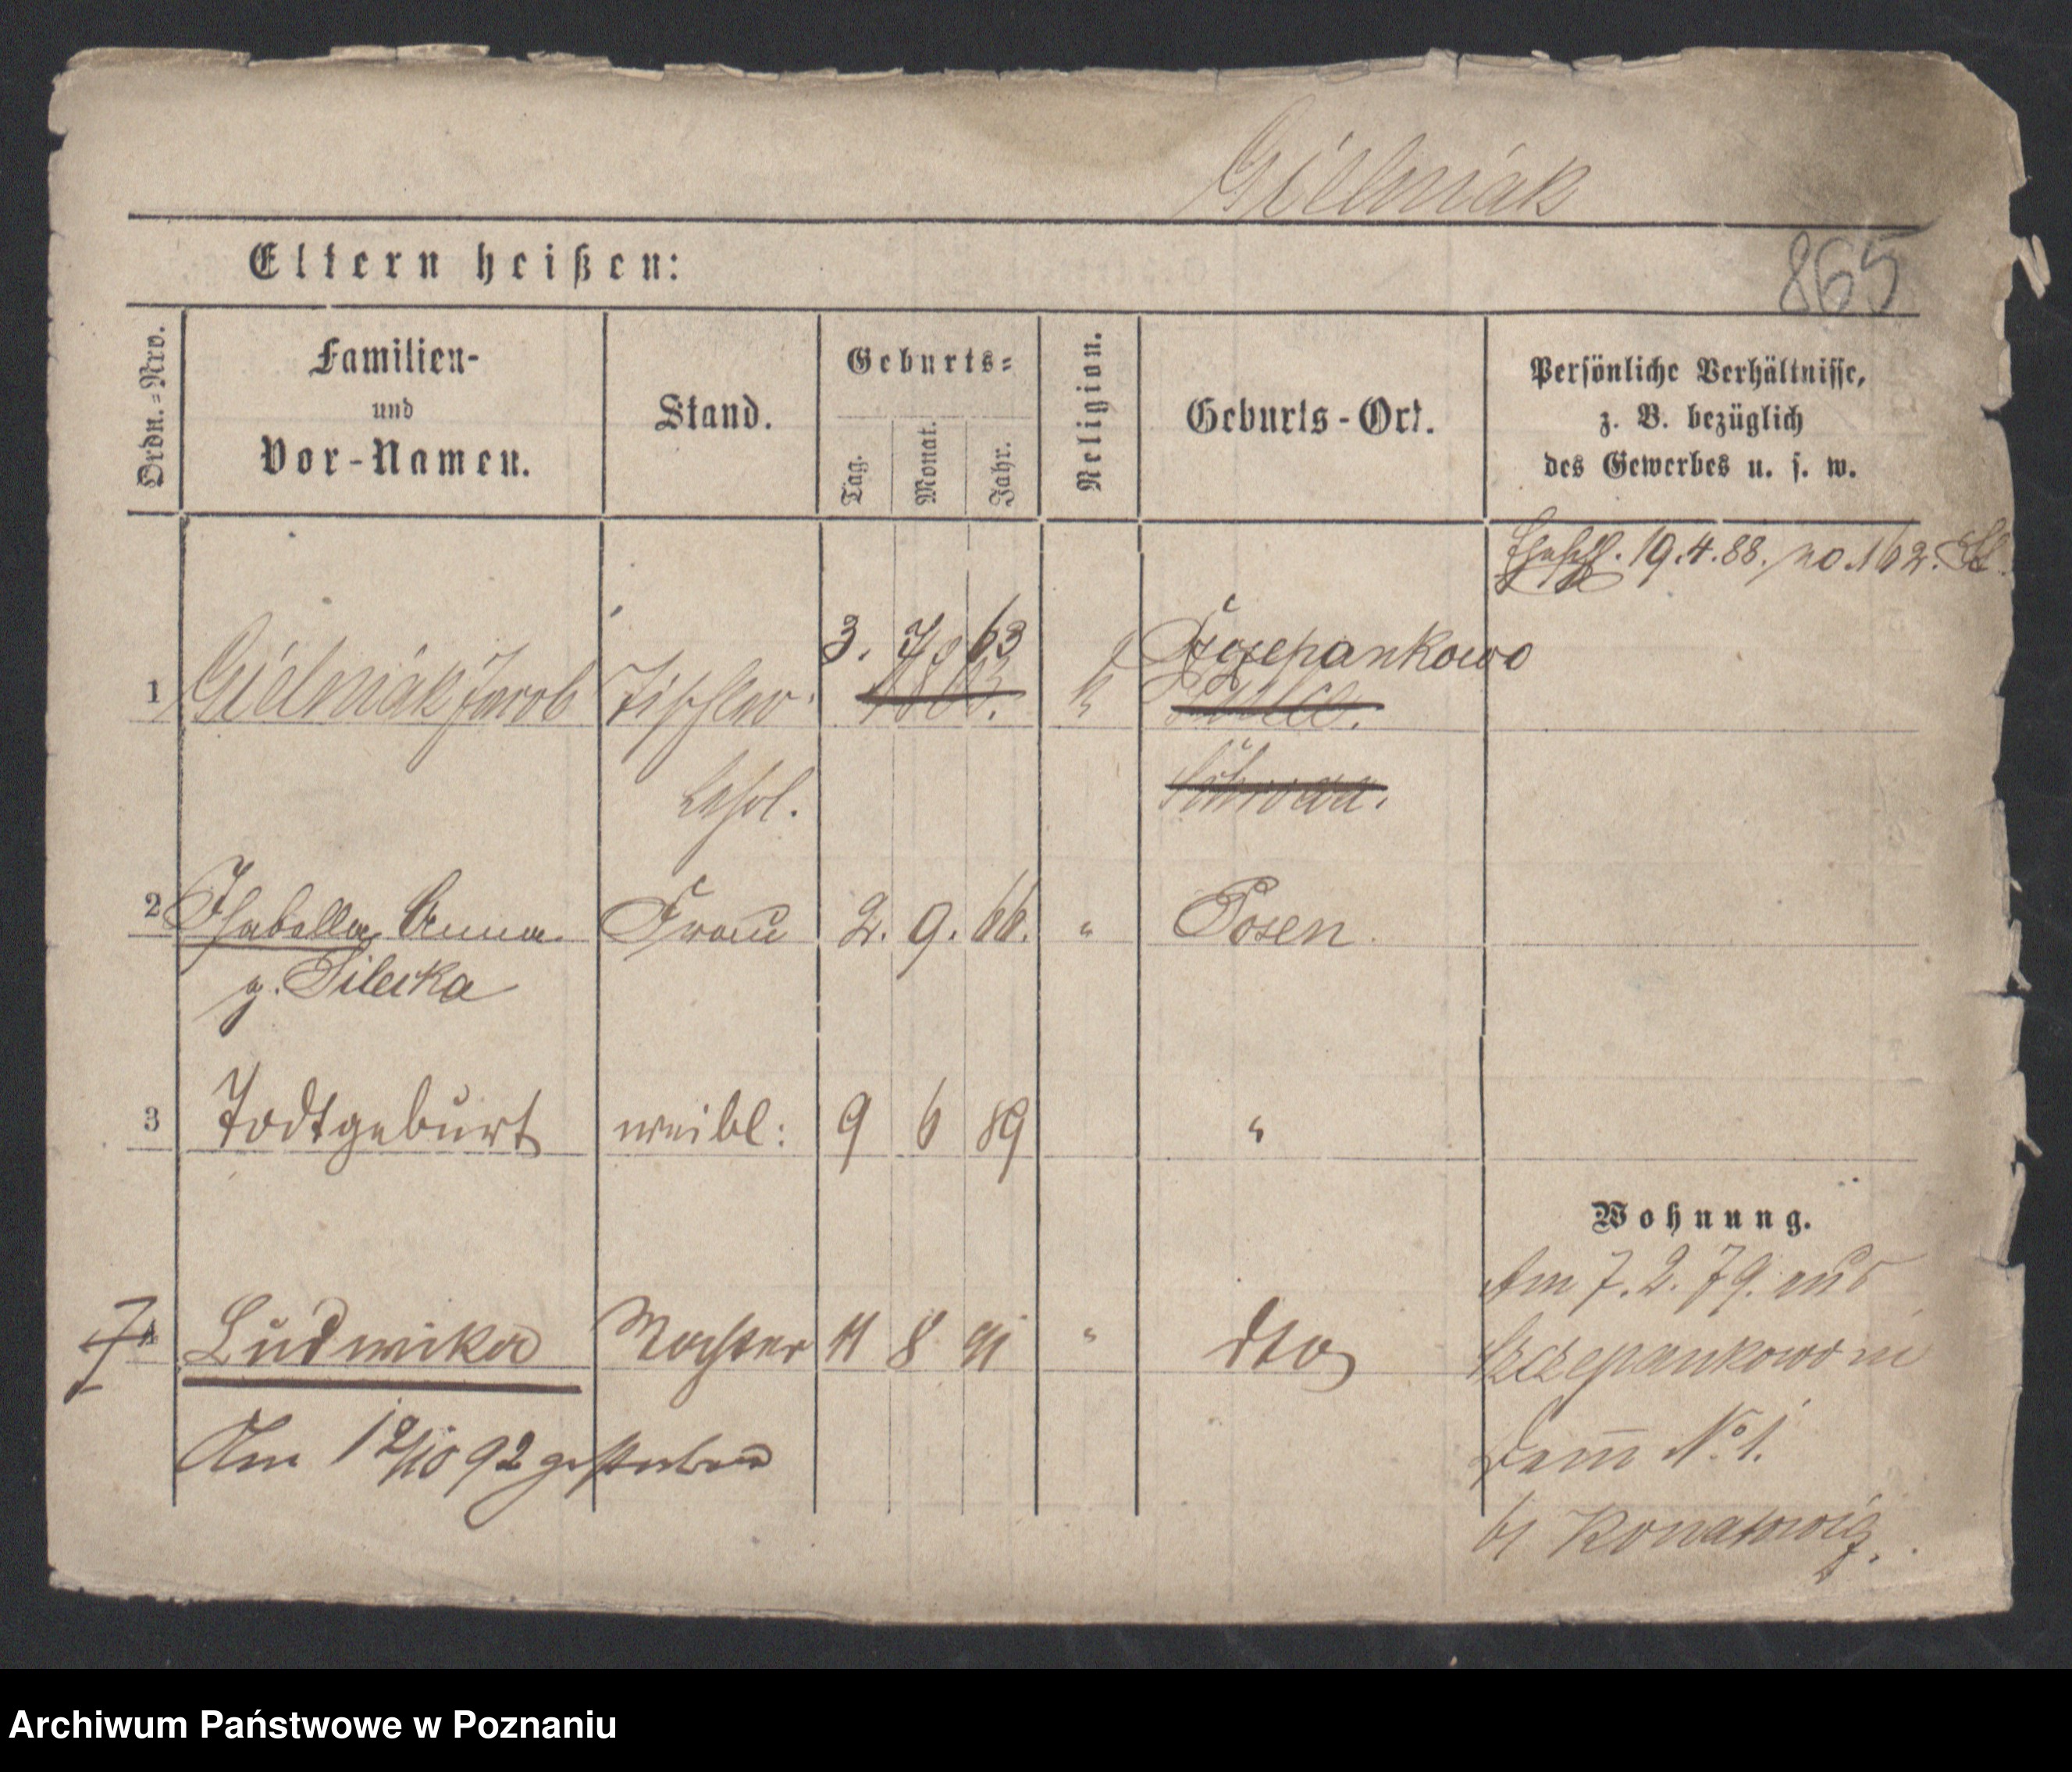 Gielniak
Eltern heißen:
865
Ordn.=Nro.
Familien-
und
Vor-Namen.
Stand.
Geburts=
Tag.
Monat.
Jahr.
Religion.
Geburts-Ort.
Persönliche Verhältnisse,
z. B. bezüglich
des Gewerbes u. s. w.
19.4.88. no. 162.
3. 7. 63
Szczepankowo
1 Gielniak Jacob Tischler 1863. k
Lehrl.
2 Isabella Anna Frau 2. 9. 66. " Posen.
g. Pilecka
3 Todtgeburt weibl: 9 6 89 "
Wohnung.
Am 7.2.79. aus
4 Ludwika Tochter 11 8 91 " dto
Szczepankowo in
Am 12/10 92 gestorben
Damm No 1.